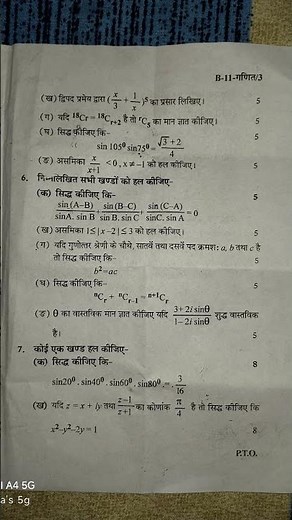 B-11-गणित/3
(ख) द्विपद प्रमेय द्वारा (x/3 + 1/x)⁵ का प्रसार लिखिए। 5
(ग) यदि ¹⁸Cr = ¹⁸Cr+2 है तो ʳC₅ का मान ज्ञात कीजिए। 5
(घ) सिद्ध कीजिए कि- 5
sin 105⁰ sin75⁰ = √3 + 2 / 4
(ङ) असमिका x/x+1 < 0, x ≠ -1 को हल कीजिए। 5
6. निम्नलिखित सभी खण्डों को हल कीजिए-
(क) सिद्ध कीजिए कि- 5
sin (A-B)/sinA. sin B + sin (B-C)/sin B. sin C + sin (C-A)/sinC. sin A = 0
(ख) असमिका 1 ≤ |x -2| ≤ 3 को हल कीजिए। 5
(ग) यदि गुणोत्तर श्रेणी के चौथे, सातवें तथा दसवें पद क्रमशः a, b तथा c है
तो सिद्ध कीजिए कि- 5
b²=ac
(घ) सिद्ध कीजिए कि- 5
ⁿCr + ⁿCr-1 = ⁿ⁺¹Cr
(ङ) θ का वास्तविक मान ज्ञात कीजिए यदि 3 + 2i sinθ / 1- 2i sinθ शुद्ध वास्तविक
है। 5
7. कोई एक खण्ड हल कीजिए-
(क) सिद्ध कीजिए कि- 8
sin20⁰ . sin40⁰ . sin60⁰ . sin80⁰ = 3/16
(ख) यदि z = x + iy तथा z-1/z+1 का कोणांक π/4 है तो सिद्ध कीजिए कि
x²-y²-2y = 1 8
P.T.O.
l A4 5G
a's 5g